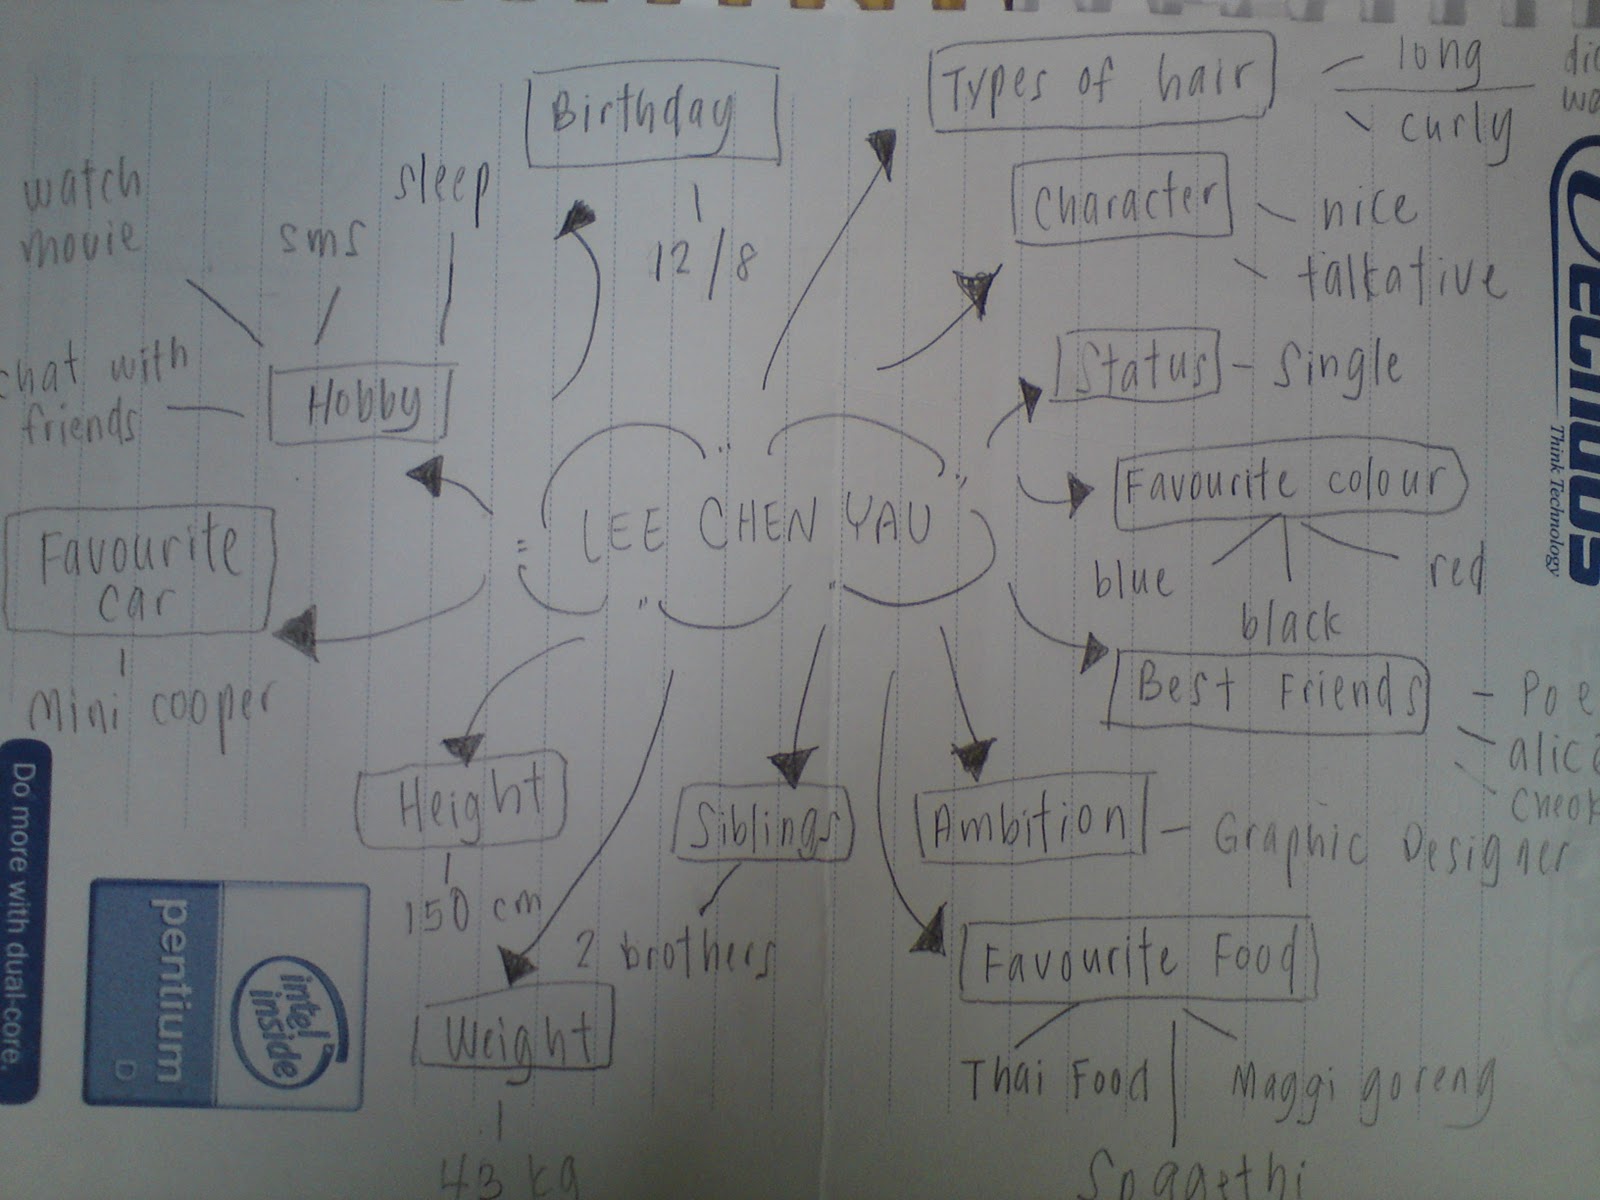 Birthday
12/8
Types of hair
long
curly
Character
nice
talkative
Status
Single
Favourite colour
blue
black
red
Best Friends
Ambition
Graphic Designer
Favourite Food
Thai Food
Spagethi
Maggi goreng
Siblings
2 brothers
Weight
43 kg
Height
150 cm
Favourite
car
Mini cooper
Hobby
chat with
friends
watch
movie
sms
sleep
LEE CHEN YAU
Think Technology
Do more with dual-core.
pentium
D
intel
inside